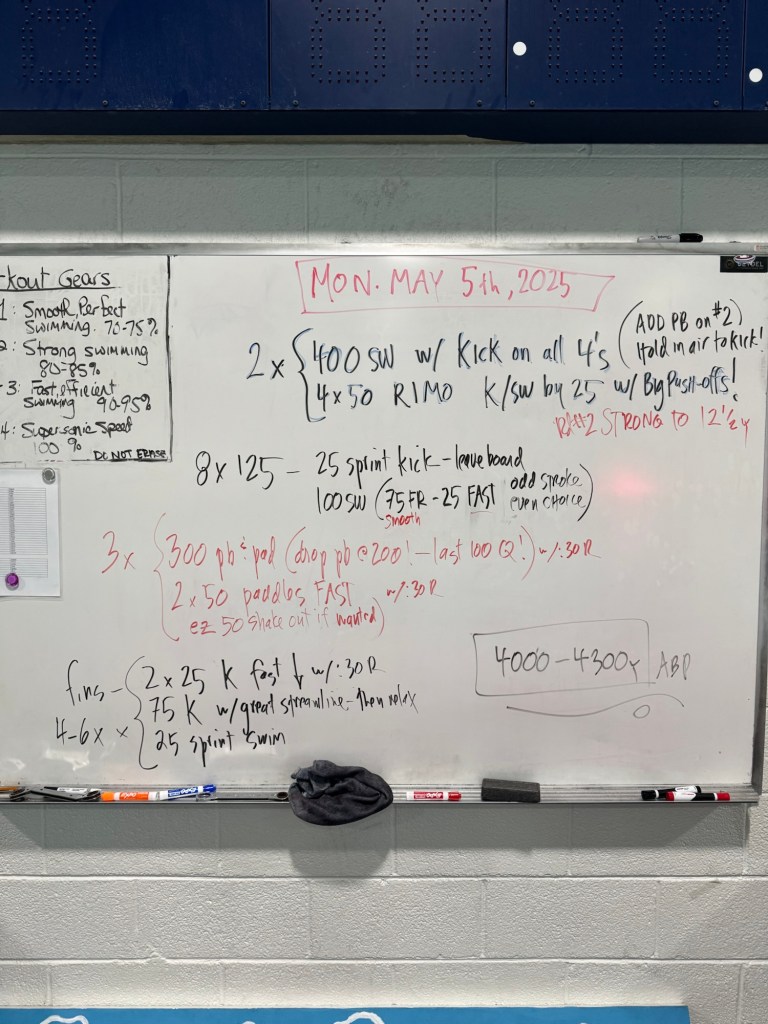 kout Gears
1: Smooth, Perfect
SWIMMING. 70-75%
2: Strong swimming
80-85%
3: Fast, efficient
SWIMMING 90-95%
4: Supersonic Speed
100 %
DO NOT ERASE
MON. MAY 5th, 2025
2 x { 400 SW w/ Kick on all 4's (ADD PB on #2)
Hold in air to kick!)
4 x 50 RIMO K/SW by 25 w/ Big Push-offs!
STRONG TO 12 1/2 y
8 x 125 - 25 sprint kick - leave board
100 SW (75 FR - 25 FAST odd stroke
smooth even CHOICE)
3 x { 300 pb & pad (drop pb @ 200! - last 100 @2!) w/ :30 R
2 x 50 paddles FAST w/ :30 R
ez 50 shake out if wanted)
fins - { 2 x 25 K fast ↓ w/ :30 R
4-6x x 75 K w/ great streamline - then relax
25 sprint swim
4000 - 4300y ABP